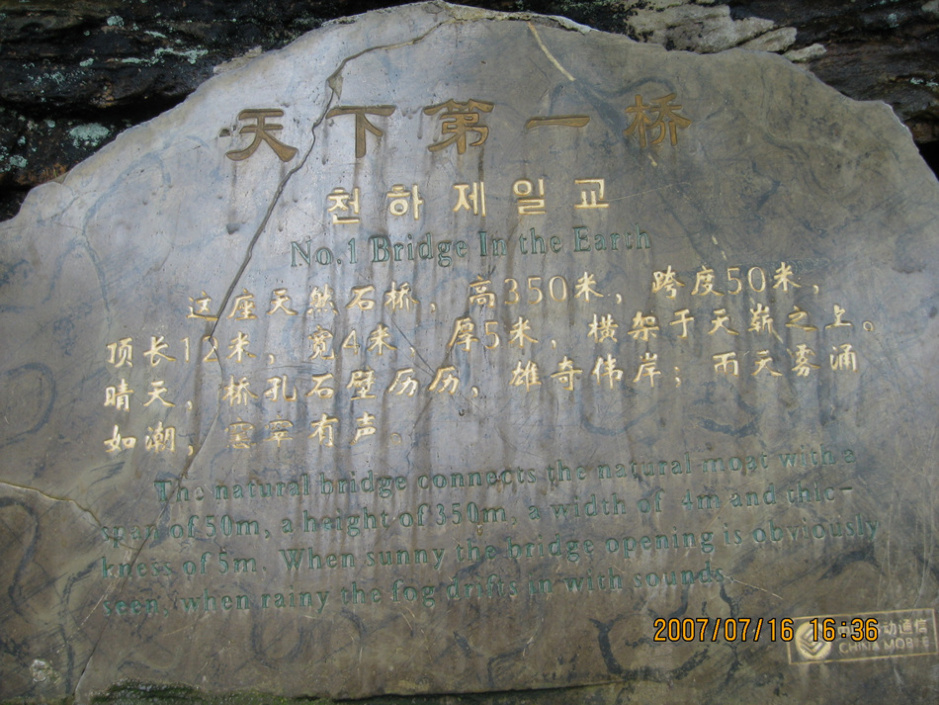 天下第一桥
천하제일교
No.1 Bridge In the Earth
这座天然石桥，高350米，跨度50米，
顶长12米，宽4米，厚5米，横架于天堑之上。
晴天，桥孔石壁历历，雄奇伟岸；雨天雾涌
如潮，有声。
The natural bridge connects the natural moat with a
span of 50m, a height of 350m, a width of 4m and thic-
kness of 5m. When sunny the bridge opening is obviously
seen, when rainy the fog drifts in with sounds.
2007/07/16 16:36
中国移动通信
CHINA MOBILE